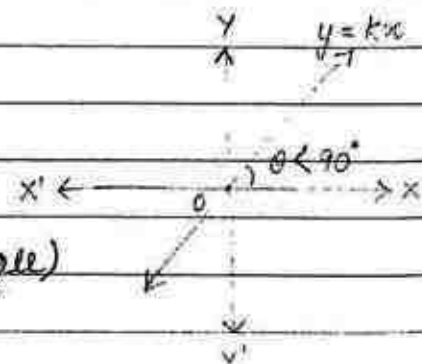 Y
y = kx
θ < 90°
X' O X
Y'